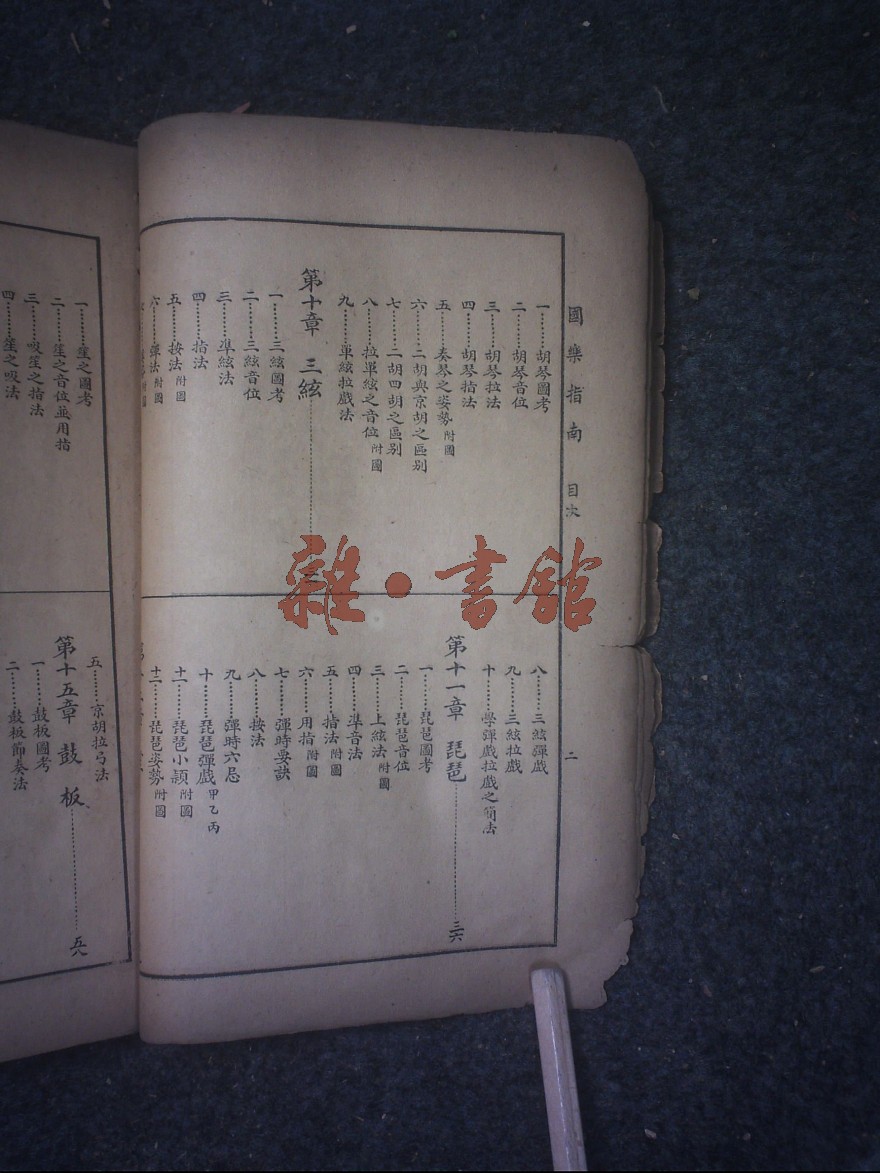 國樂指南 目次
二
一……胡琴圖考
二……胡琴音位
三……胡琴拉法
四……胡琴指法
五……奏琴之姿勢 附圖
六……二胡與京胡之區别
七……二胡四胡之區别
八……拉單絃之音位 附圖
九……單絃拉戲法
第十章 三絃
一……三絃圖考
二……三絃音位
三……準絃法
四……指法
五……按法 附圖
六……彈法 附圖
八……三絃彈戲
九……三絃拉戲
十……學彈戲拉戲之簡法
第十一章 琵琶……三六
一……琵琶圖考
二……琵琶音位
三……上絃法 附圖
四……準音法
五……指法 附圖
六……用指 附圖
七……彈時要訣
八……按法
九……彈時六忌
十……琵琶彈戲 甲乙丙
十一……琵琶小頴 附圖
十二……琵琶姿勢 附圖
一……笙之圖考
二……笙之音位並用指
三……吸笙之指法
四……笙之吸法
五……京胡拉弓法
第十五章 鼓板……五八
一……鼓板圖考
二……鼓板節奏法
雜·書館